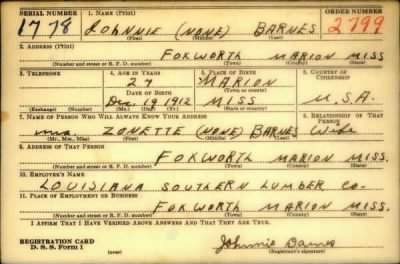 SERIAL NUMBER 1. NAME (Print) ORDER NUMBER
1778 JOHNNIE (NONE) BARNES 2799
(First) (Middle) (Last)
2. ADDRESS (Print)
FOXWORTH MARION MISS
(Number and street or R. F. D. number) (Town) (County) (State)
3. TELEPHONE 4. AGE IN YEARS 5. PLACE OF BIRTH 6. COUNTRY OF CITIZENSHIP
27 MARION
DATE OF BIRTH (Town or county)
Dec. 19 1912 MISS U.S.A.
(Exchange) (Number) (Mo.) (Day) (Yr.) (State or country)
7. NAME OF PERSON WHO WILL ALWAYS KNOW YOUR ADDRESS 8. RELATIONSHIP OF THAT PERSON
mrs. ZONETTE (NONE) BARNES Wife
(Mr., Mrs., Miss) (First) (Middle) (Last)
9. ADDRESS OF THAT PERSON
FOXWORTH MARION MISS.
(Number and street or R. F. D. number) (Town) (County) (State)
10. EMPLOYER'S NAME
LOUISIANA SOUTHERN LUMBER CO.
11. PLACE OF EMPLOYMENT OR BUSINESS
FOXWORTH MARION MISS.
(Number and street or R. F. D. number) (Town) (County) (State)
I AFFIRM THAT I HAVE VERIFIED ABOVE ANSWERS AND THAT THEY ARE TRUE.
REGISTRATION CARD
D. S. S. Form 1 (over) Johnnie Barnes
(Registrant's signature)